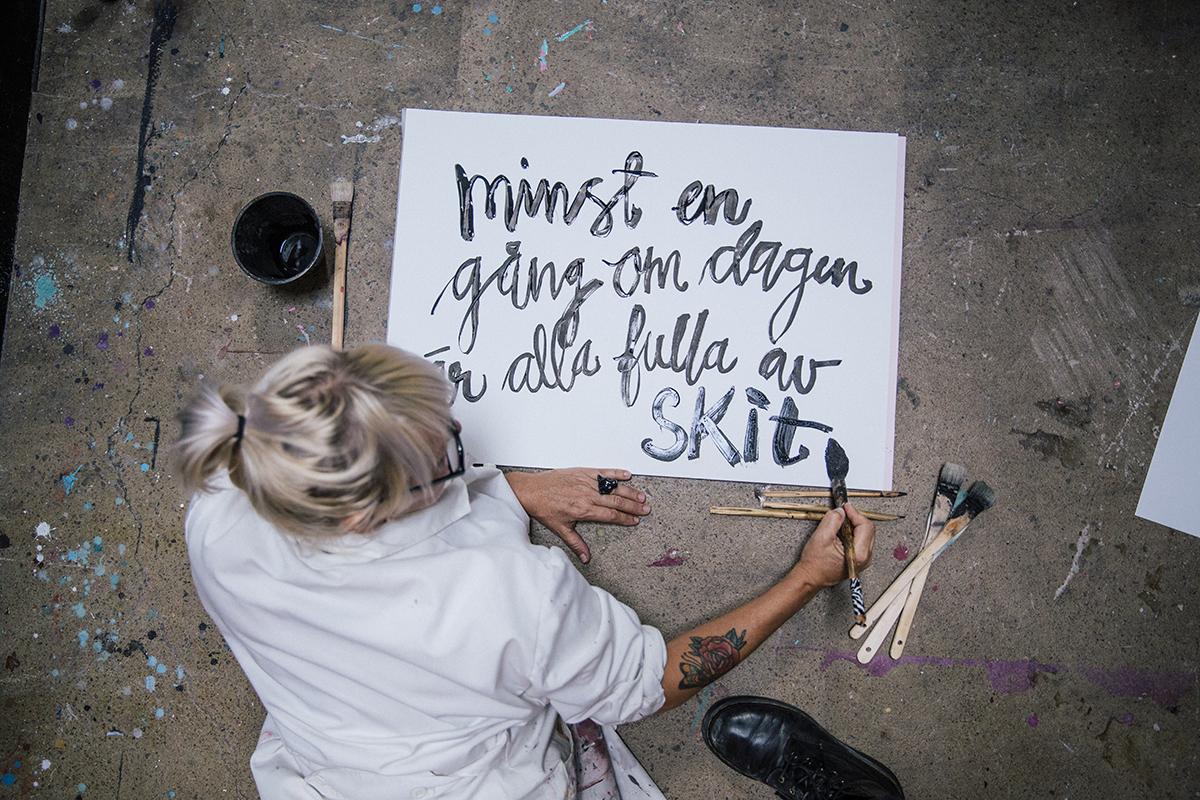 minst en
gång om dagen
är alla fulla av
SKit